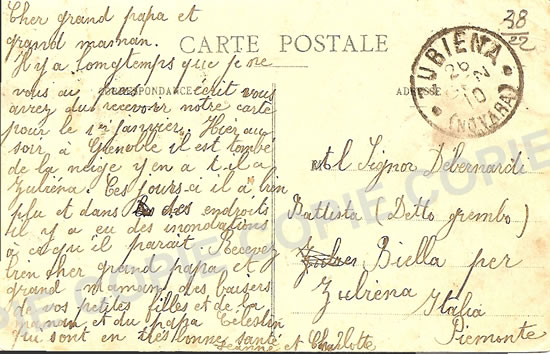 Cher grand papa et
grand maman.
Il y a longtemps que je ne
vous ai pas écrit vous
avrez du recevoir notre carte
pour le 1er janvier. Hier au
soir à Grenoble il est tombé
de la neige y en a t-il à
Zubiéna. Ces jours-ci il a bien
plu et dans des endroits
il y a eu des inondations
à ce qu'il parait. Recevez
cher grand papa, et
grand maman des baisers
de vos petites filles et de la
maman et du papa Célestin
qui sont en très bonne santé
Jeanne et Charlotte
CARTE POSTALE
CORRESPONDANCE
ADRESSE
38
22
ZUBIENA
26 2
10
(NOVARA)
al Signor Débernardi
Battista (Ditto grembo)
Biella per
Zubiena
Italia
Piemonte
COPIE COPIE COPIE COPIE